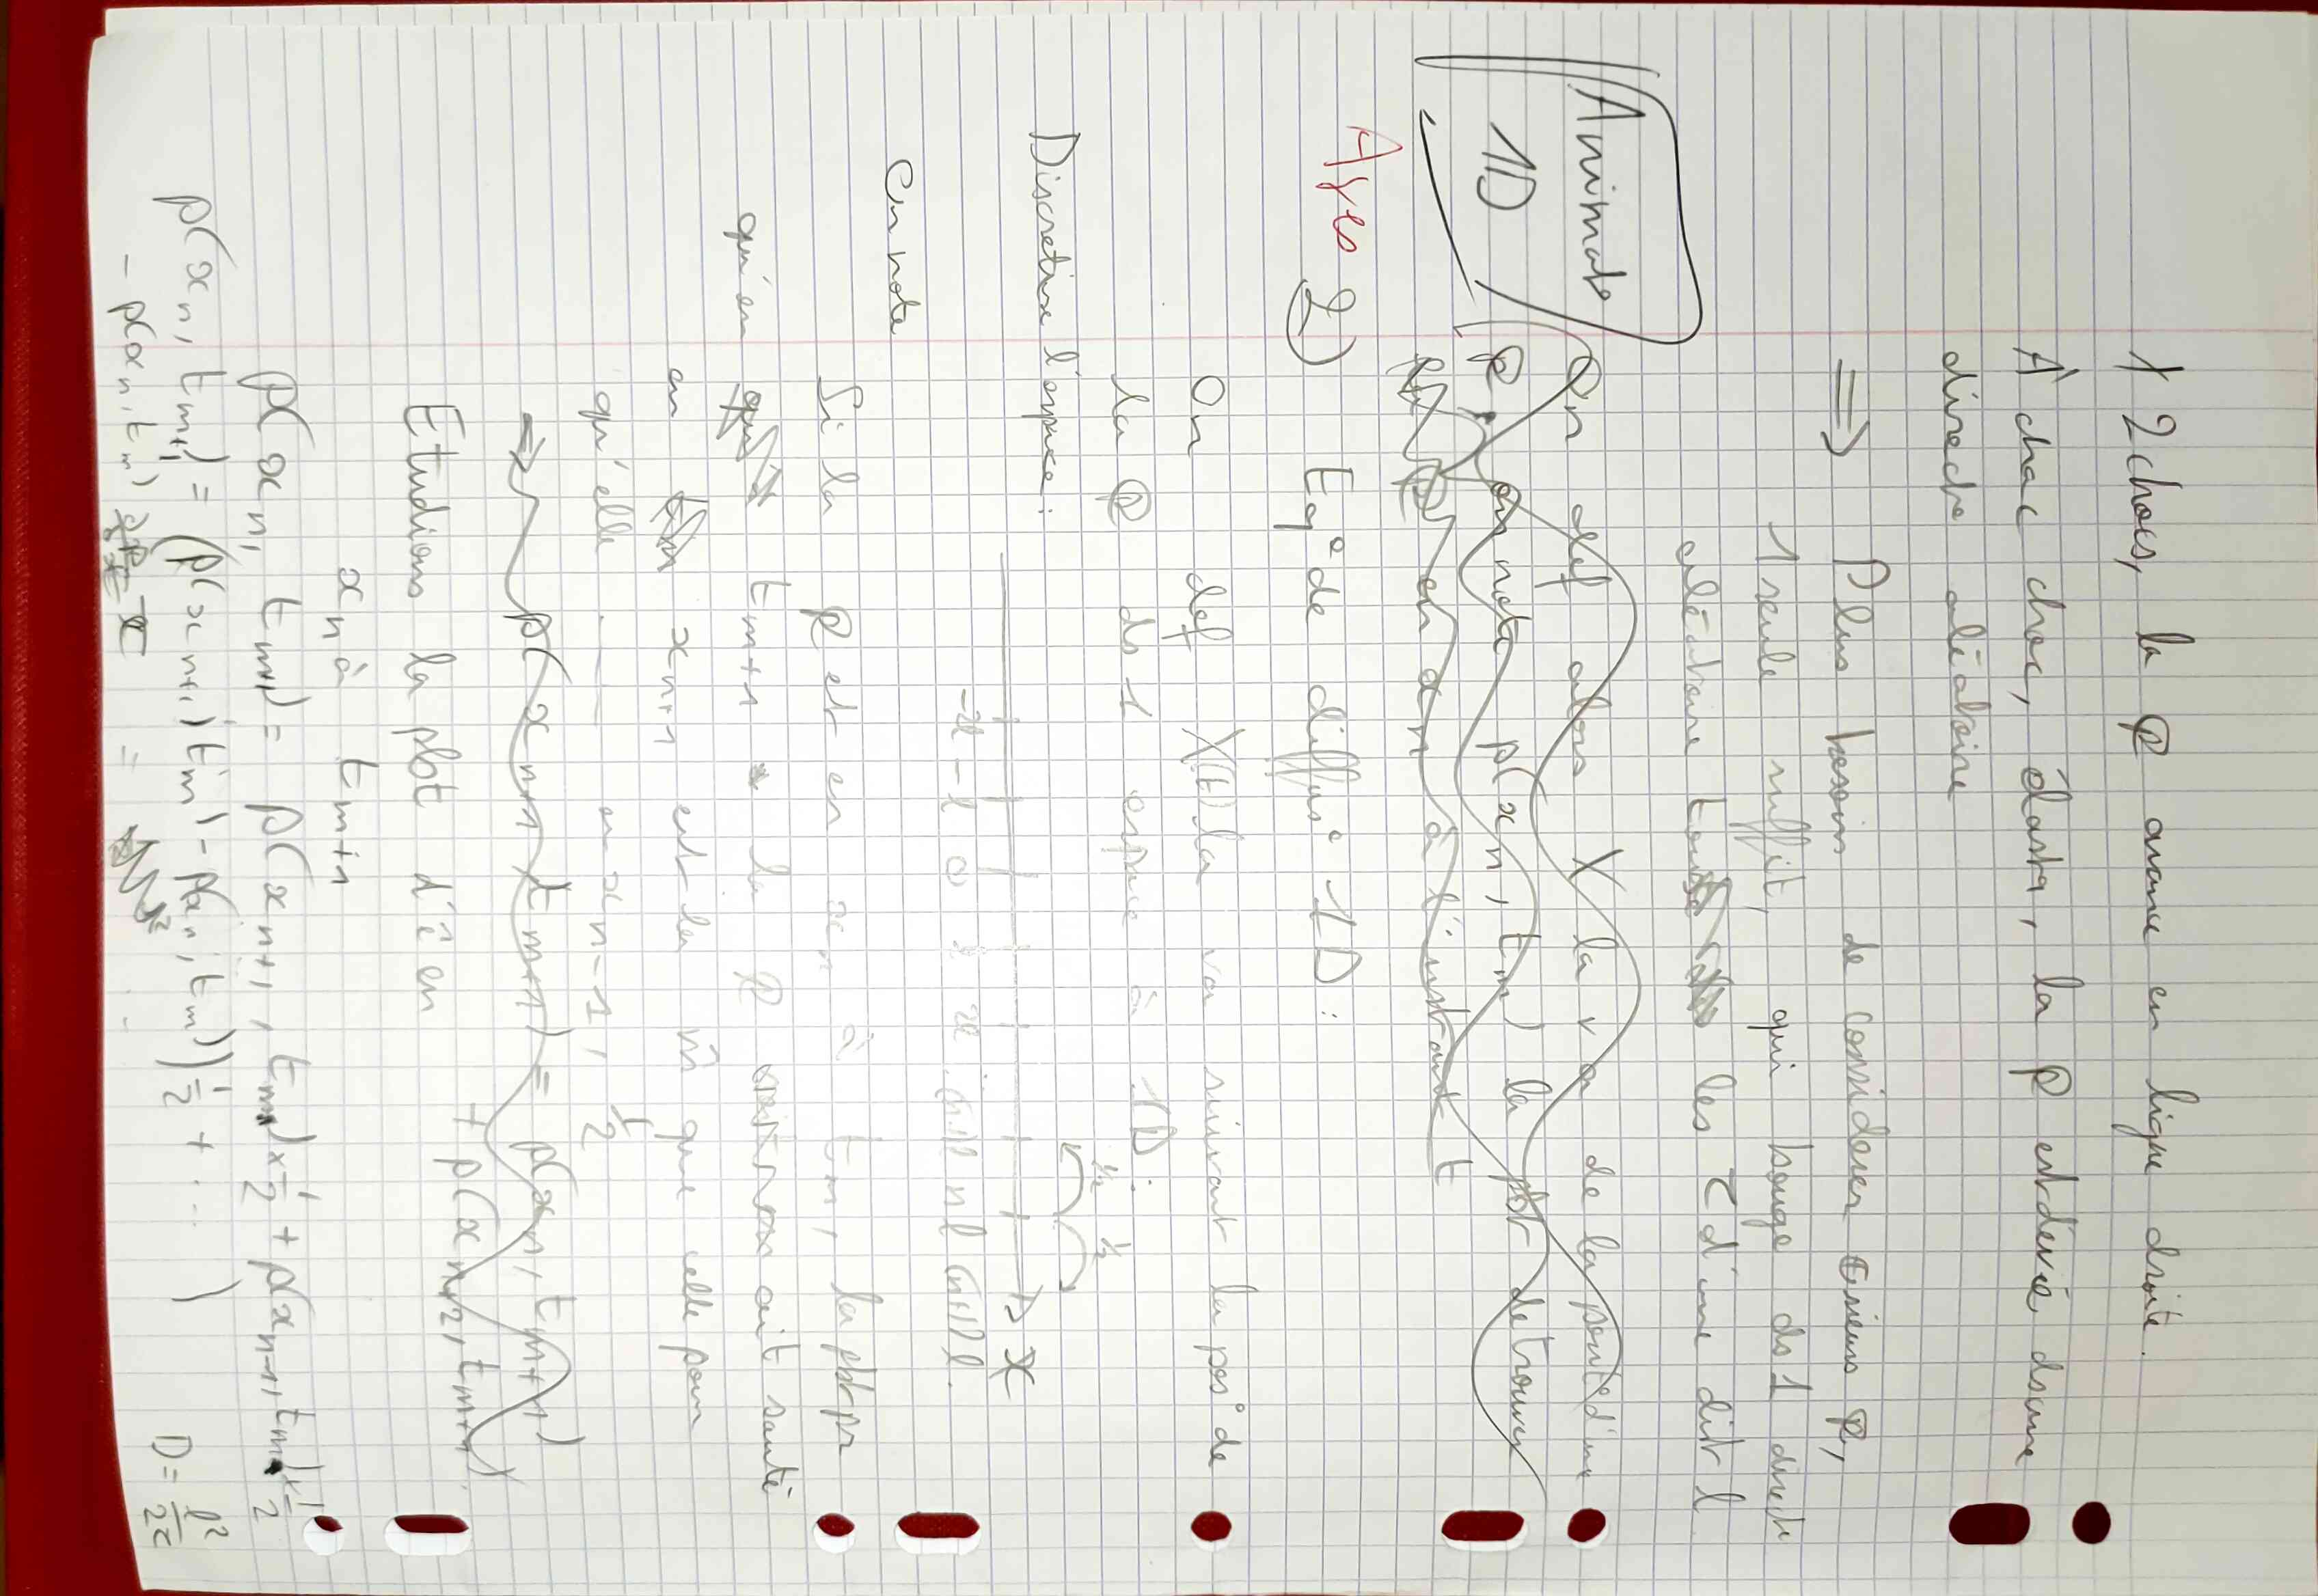 1 2 chocs, la P avance en ligne droite.
À chac choc, élastq, la P est déviée ds une
directe aléatoire
⇒ Plus besoin de considérer P,
1 seule suffit, qui bouge ds 1 directe
aléatoire les τ d'une dist l.
Animat°
1D
On def alors X la va de la d'une
P. on note p(xn, tm) la pbt de trouver
en xn à l'instant t
Ayes
2) Eq° de diffus° 1D :
On def X(t) la va suivant la pos° de
la P ds 1 espace à 1D :
Discretise l'espace :
½ ½
x
-2l -l 0 l 2l (n-1)l nl (n+1)l.
on note
Si la P est en xn à tm, la pbt pr
qu'en tm+1 la P ait sauté
en xn+1 est la m̂ que celle pour
qu'elle ... en xn-1, 1/2
⇒ p(xn+1, tm+1) = p(xn, tm+1)
+ p(xn+2, tm+1)
Etudions la pbt d'ê en
xn à tm+1
p(xn, tm+1) = p(xn+1, tm) × 1/2 + p(xn-1, tm) × 1/2
p(xn, tm+1) = (p(xn+1, tm) - p(xn, tm)) 1/2 + ... )
- p(xn, tm)
= ...
D = l²/2τ